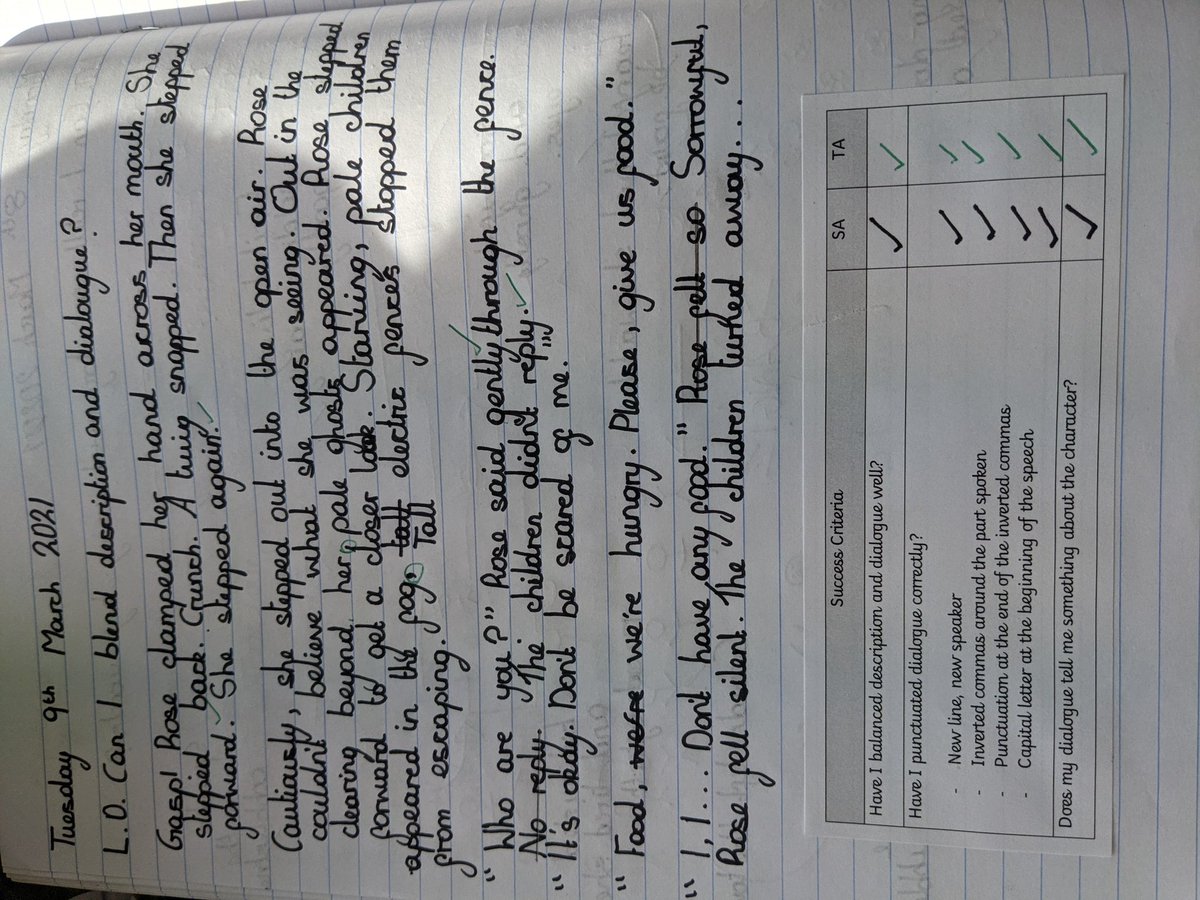 Tuesday 9th March 2021
L.O. Can I blend description and dialougue?
Gasp! Rose clamped her hand across her mouth. She
stepped back. Crunch. A twig snapped. Then she stepped
forward. She stepped again.
Cautiously, she stepped out into the open air. Rose
couldn't believe what she was seeing. Out in the
clearing beyond her, pale ghosts appeared. Rose stepped
forward to get a closer look. Starving, pale children
appeared in the fog. tall electric fences stopped them
Tall
from escaping.
"Who are you?" Rose said gently through the fence.
No reply. The children didn't reply.
"It's okay. Don't be scared of me."
"Food, we're we're hungry. Please, give us food."
"I, I... Don't have any food." Rose felt so Sorrowful,
Rose fell silent. The children turned away....
Success Criteria SA TA
Have I balanced description and dialogue well? ✓ ✓
Have I punctuated dialogue correctly?
- New line, new speaker ✓ ✓
- Inverted commas around the part spoken ✓ ✓
- Punctuation at the end of the inverted commas ✓ ✓
- Capital letter at the beginning of the speech ✓ ✓
Does my dialogue tell me something about the character? ✓ ✓